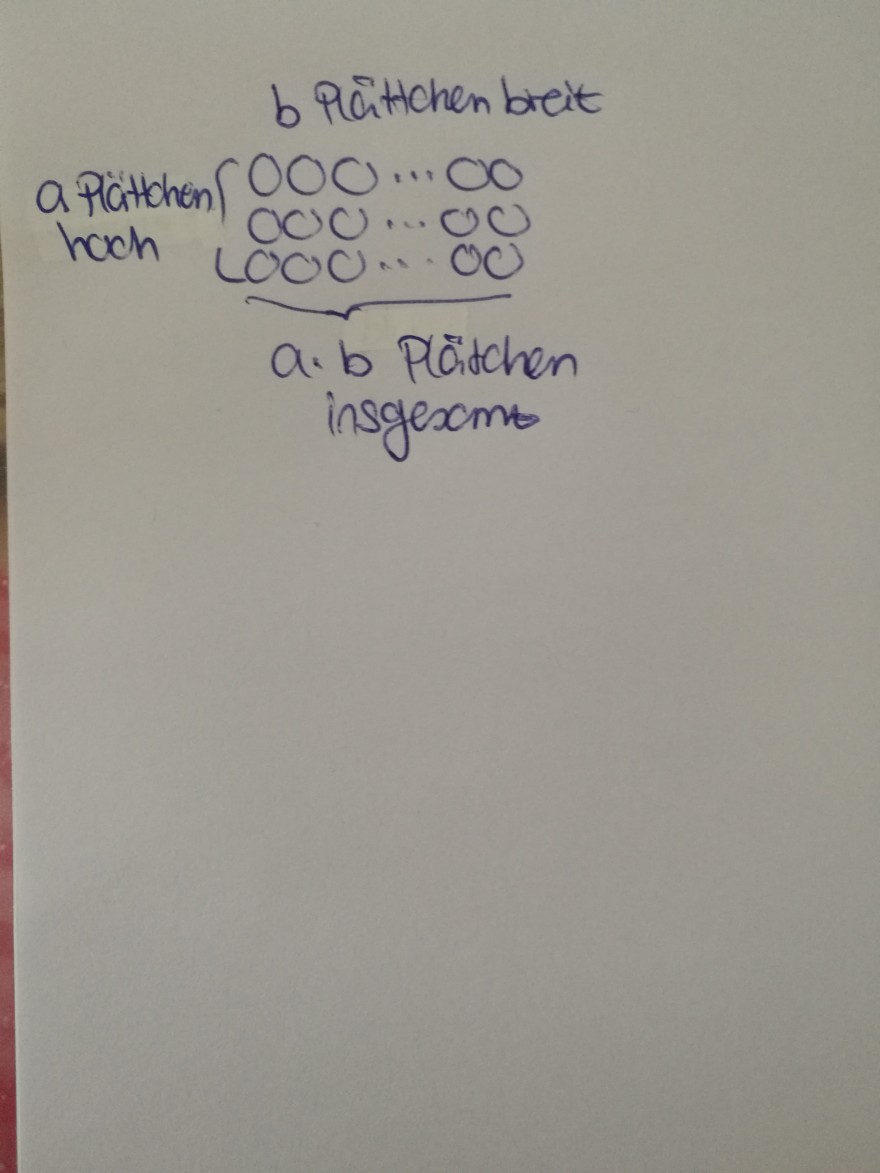 b Plättchen breit
a Plättchen
hoch
OOO...OO
OOO...OO
OOO...OO
a·b Plätchen
insgesamt